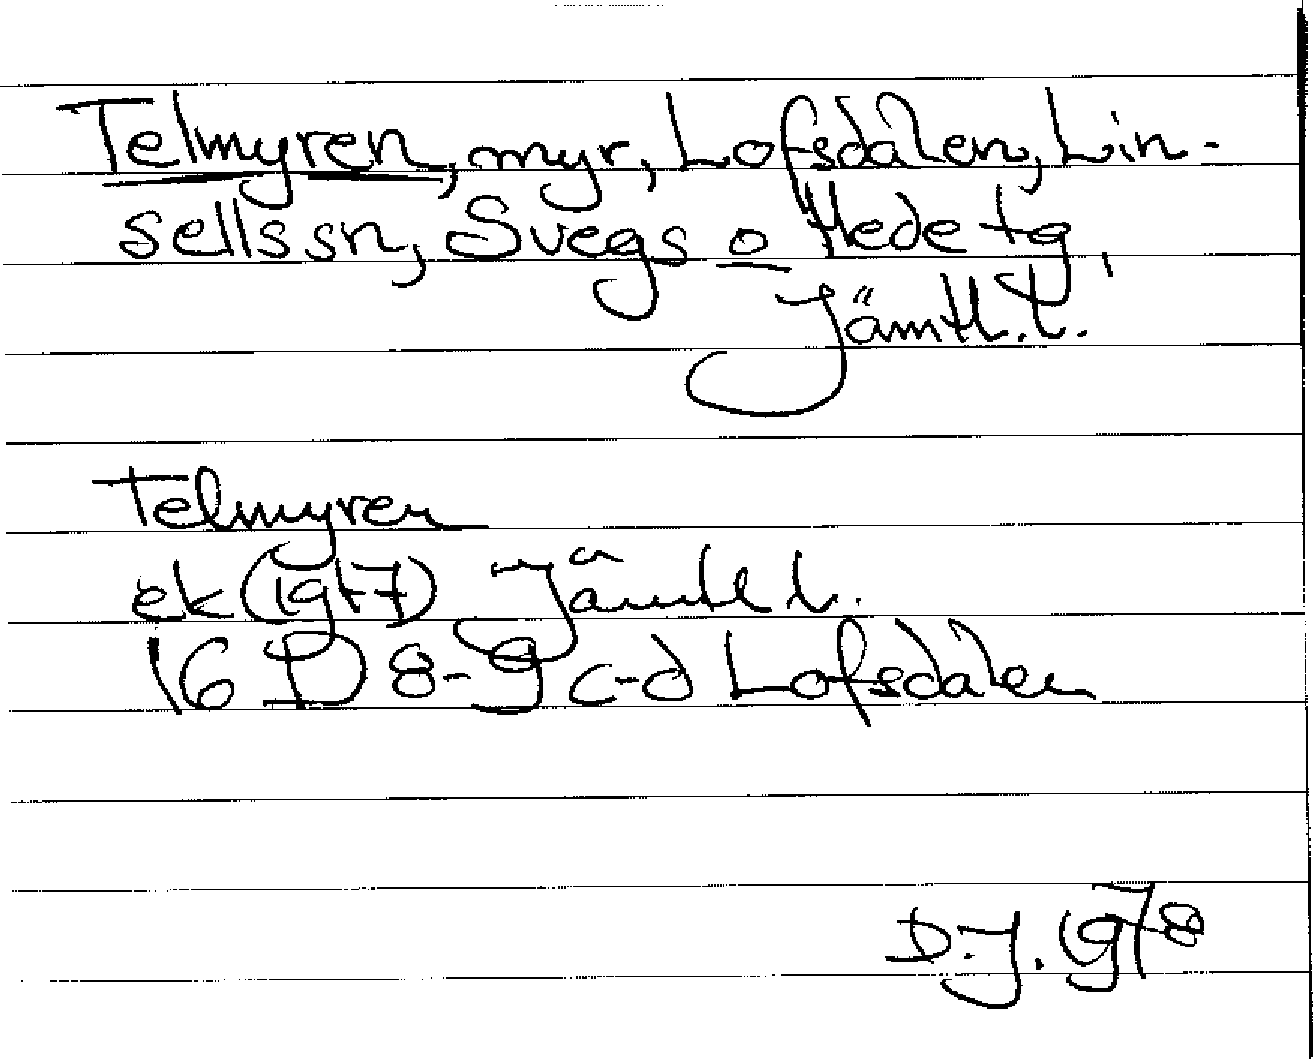 Telmyren, myr, Lofsdalen, Lin-
sells sn, Svegs o Hede tg,
Jämtl. l.
Telmyren
ek (1977) Jämtl l.
16 D 8-9 c-d Lofsdalen
D.J. 1978